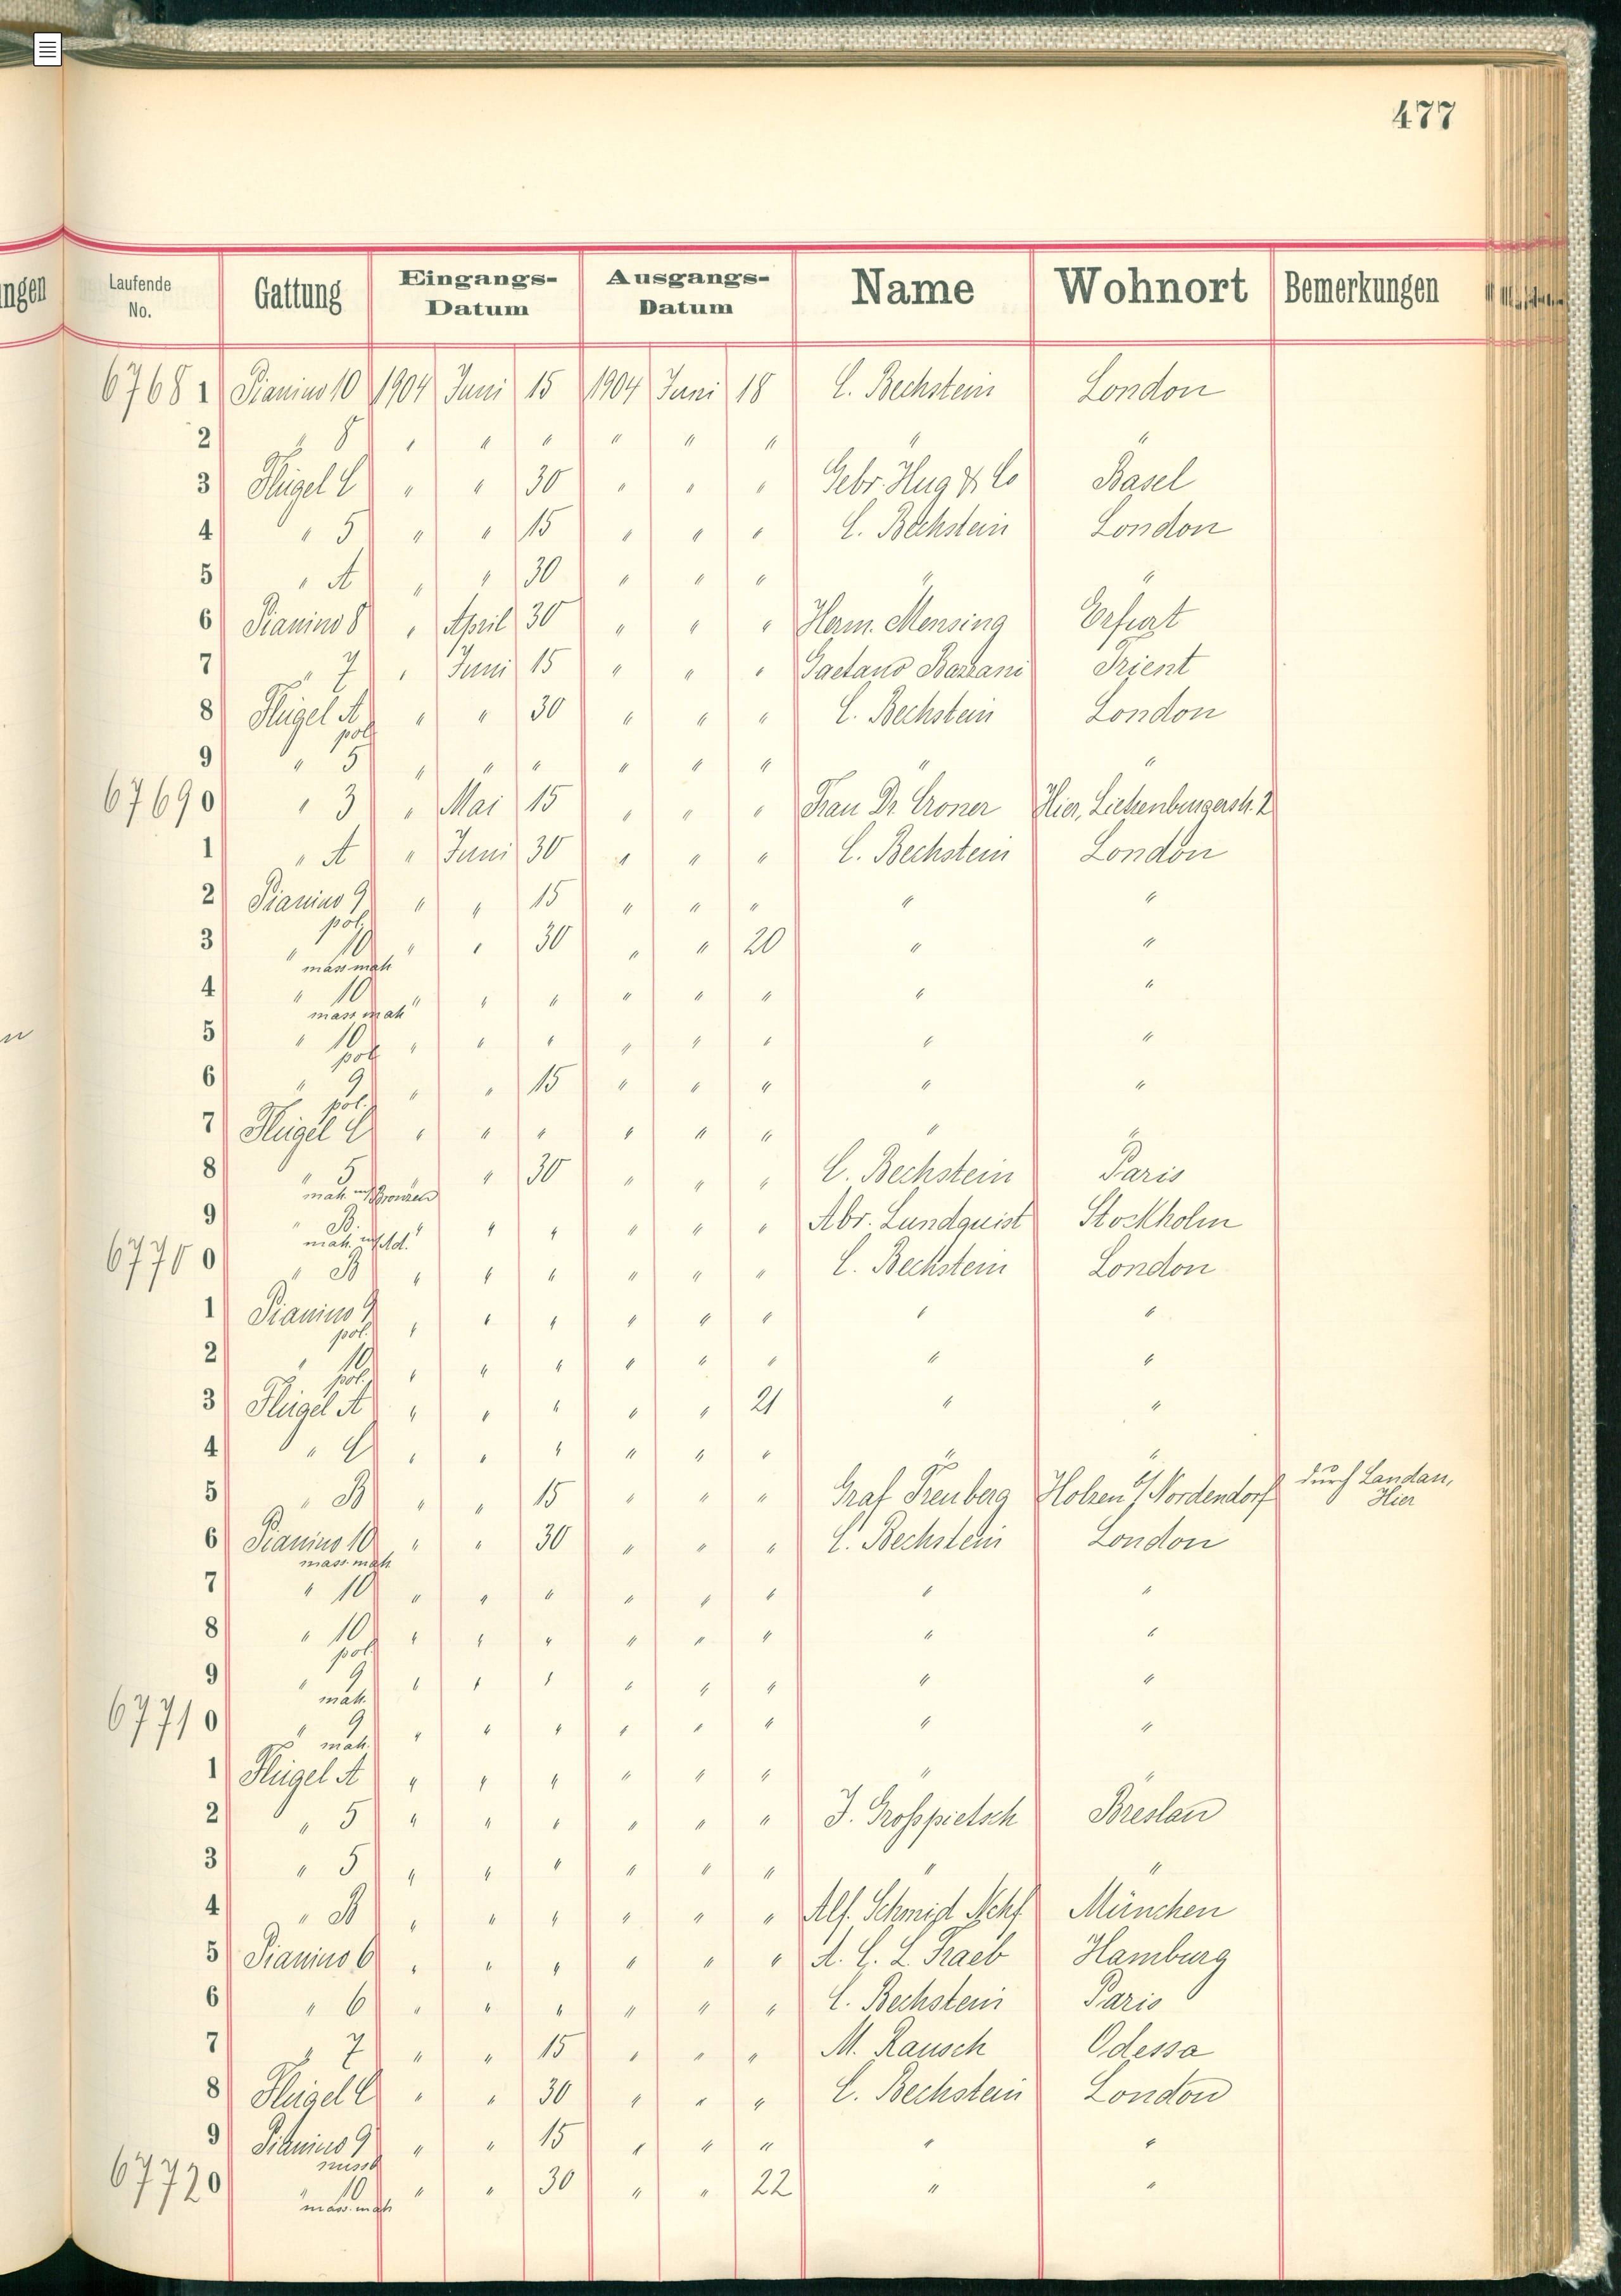 477
ungen Laufende No. Gattung Eingangs-Datum Ausgangs-Datum Name Wohnort Bemerkungen
67681 Pianino 10 1904 Juni 15 1904 Juni 18 C. Bechstein London
2 " 8 " " " " " " " "
3 Flügel C " " 30 " " " Gebr. Hug & Co Basel
4 " 5 " " 15 " " " C. Bechstein London
5 " A " " 30 " " " " "
6 Pianino 8 " April 30 " " " Herm. Mensing Erfurt
7 " 7 " Juni 15 " " " Gaetano Bazzani Trient
8 Flügel A " " 30 " " " C. Bechstein London
pol.
9 " 5 " " " " " " " "
67690 " 3 " Mai 15 " " " Frau Dr. Croner Hier,
1 " A " Juni 30 " " " C. Bechstein London
2 Pianino 9 " " 15 " " " " "
pol.
3 " 10 " " 30 " " 20 " "
mass. mah
4 " 10 " " " " " " " "
mass. mah
5 " 10 " " " " " " " "
pol.
6 " 9 " " 15 " " " " "
pol.
7 Flügel C " " " " " " " "
8 " 5 " 30 " " " C. Bechstein Paris
mah. m/Bronzen
9 " B. " " " " " " Abr. Lundquist Stockholm
mah.
67700 " B " " " " " " C. Bechstein London
1 Pianino 9 " " " " " " " "
pol.
2 " 10 " " " " " " " "
pol.
3 Flügel A " " " " " 21 " "
4 " C " " " " " " " "
5 " B " " 15 " " " Graf Treuberg Holzen b/Nordendorf durch Landau,
Hier
6 Pianino 10 " " 30 " " " C. Bechstein London
mass. mah
7 " 10 " " " " " " " "
8 " 10 " " " " " " " "
pol.
9 " 9 " " " " " " " "
mah.
67710 " 9 " " " " " " " "
mah.
1 Flügel A " " " " " " " "
2 " 5 " " " " " " J. Grosspietsch Breslau
3 " 5 " " " " " " " "
4 " B " " " " " " Alf. Schmid Nchf München
5 Pianino 6 " " " " " " A. C. L. Traeb Hamburg
6 " 6 " " " " " " C. Bechstein Paris
7 " 7 " " 15 " " " M. Rausch Odessa
8 Flügel C " " 30 " " " C. Bechstein London
9 Pianino 9 " " 15 " " " " "
nussb
67720 " 10 " " 30 " " 22 " "
mass. mah